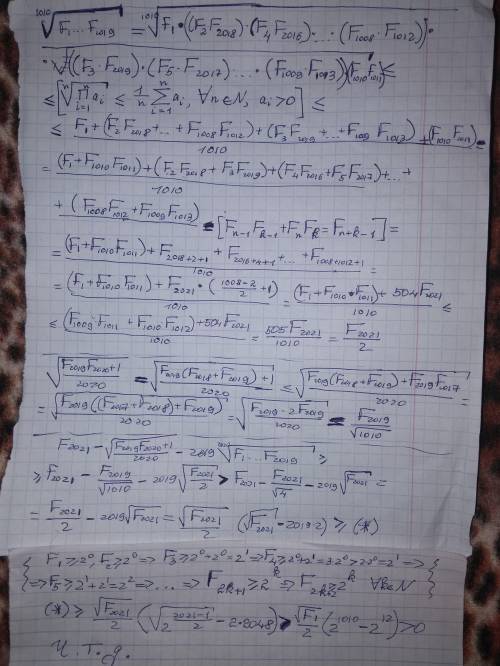 \sqrt[1010]{F_1 ... F_{2019}} = \sqrt[1010]{F_1 · ((F_2 F_{2018}) · (F_4 F_{2016}) · ... · (F_{1008} · F_{1012})) ·
· ((F_3 · F_{2019}) · (F_5 · F_{2017}) ... · (F_{1009} F_{1013})) (F_{1010} F_{1011})} ≤
≤ [ \sqrt[n]{∏_{i=1}^{n} a_i} ≤ \frac{1}{n} ∑_{i=1}^{n} a_i, ∀n∈N, a_i>0 ] ≤
≤ \frac{F_1 + (F_2 F_{2018} + ... + F_{1008} F_{1012}) + (F_3 F_{2019} + ... + F_{1009} F_{1013}) + (F_{1010} F_{1011})}{1010} =
= \frac{(F_1 + F_{1010} F_{1011}) + (F_2 F_{2018} + F_3 F_{2019}) + (F_4 F_{2016} + F_5 F_{2017}) + ... +
+ (F_{1008} F_{1012} + F_{1009} F_{1013})}{1010} = [F_{n-1} F_{k-1} + F_n F_k = F_{n+k-1}] =
= \frac{(F_1 + F_{1010} F_{1011}) + F_{2018+2+1} + F_{2016+4+1} + ... + F_{1008+1012+1}}{1010} =
= \frac{(F_1 + F_{1010} F_{1011}) + F_{2021} · (\frac{1008-2}{2} + 1)}{1010} = \frac{(F_1 + F_{1010} · F_{1011}) + 504 F_{2021}}{1010} ≤
≤ \frac{(F_{1009} F_{1011} + F_{1010} F_{1012}) + 504 F_{2021}}{1010} = \frac{505 F_{2021}}{1010} = \frac{F_{2021}}{2}
\sqrt{\frac{F_{2019} F_{2020} + 1}{2020}} = \sqrt{\frac{F_{2019} (F_{2018} + F_{2019}) + 1}{2020}} ≤ \sqrt{\frac{F_{2019} (F_{2018} + F_{2019}) + F_{2019} F_{2017}}{2020}} =
= \sqrt{\frac{F_{2019} ((F_{2017} + F_{2018}) + F_{2019})}{2020}} = \sqrt{\frac{F_{2019} · 2 F_{2019}}{2020}} = \frac{F_{2019}}{\sqrt{1010}}
F_{2021} - \sqrt{\frac{F_{2019} F_{2020} + 1}{2020}} - 2019 \sqrt[2020]{F_1 ... F_{2019}} ≥
≥ F_{2021} - \frac{F_{2019}}{\sqrt{1010}} - 2019 \sqrt{\frac{F_{2021}}{2}} > F_{2021} - \frac{F_{2021}}{\sqrt{4}} - 2019 \sqrt{F_{2021}} =
= \frac{F_{2021}}{2} - 2019 \sqrt{F_{2021}} = \frac{\sqrt{F_{2021}}}{2} (\sqrt{F_{2021}} - 2019·2) ≥ (*)
{ F_1 ≥ 2^0, F_2 ≥ 2^0 => F_3 ≥ 2^0 + 2^0 = 2^1 => F_4 ≥ 2^0 + 2^1 = 3·2^0 > 2·2^0 = 2^1 =>
=> F_5 ≥ 2^1 + 2^1 = 2^2 => ... => F_{2k+1} ≥ 2^k, F_{2k+2} ≥ 2^k ∀k∈N }
(*) ≥ \frac{\sqrt{F_{2021}}}{2} (\sqrt{2^{\frac{2021-1}{2}}} - 2·2048) > \frac{\sqrt{F_1}}{2} (2^{1010} - 2^{12}) > 0
Ч.Т.Д.